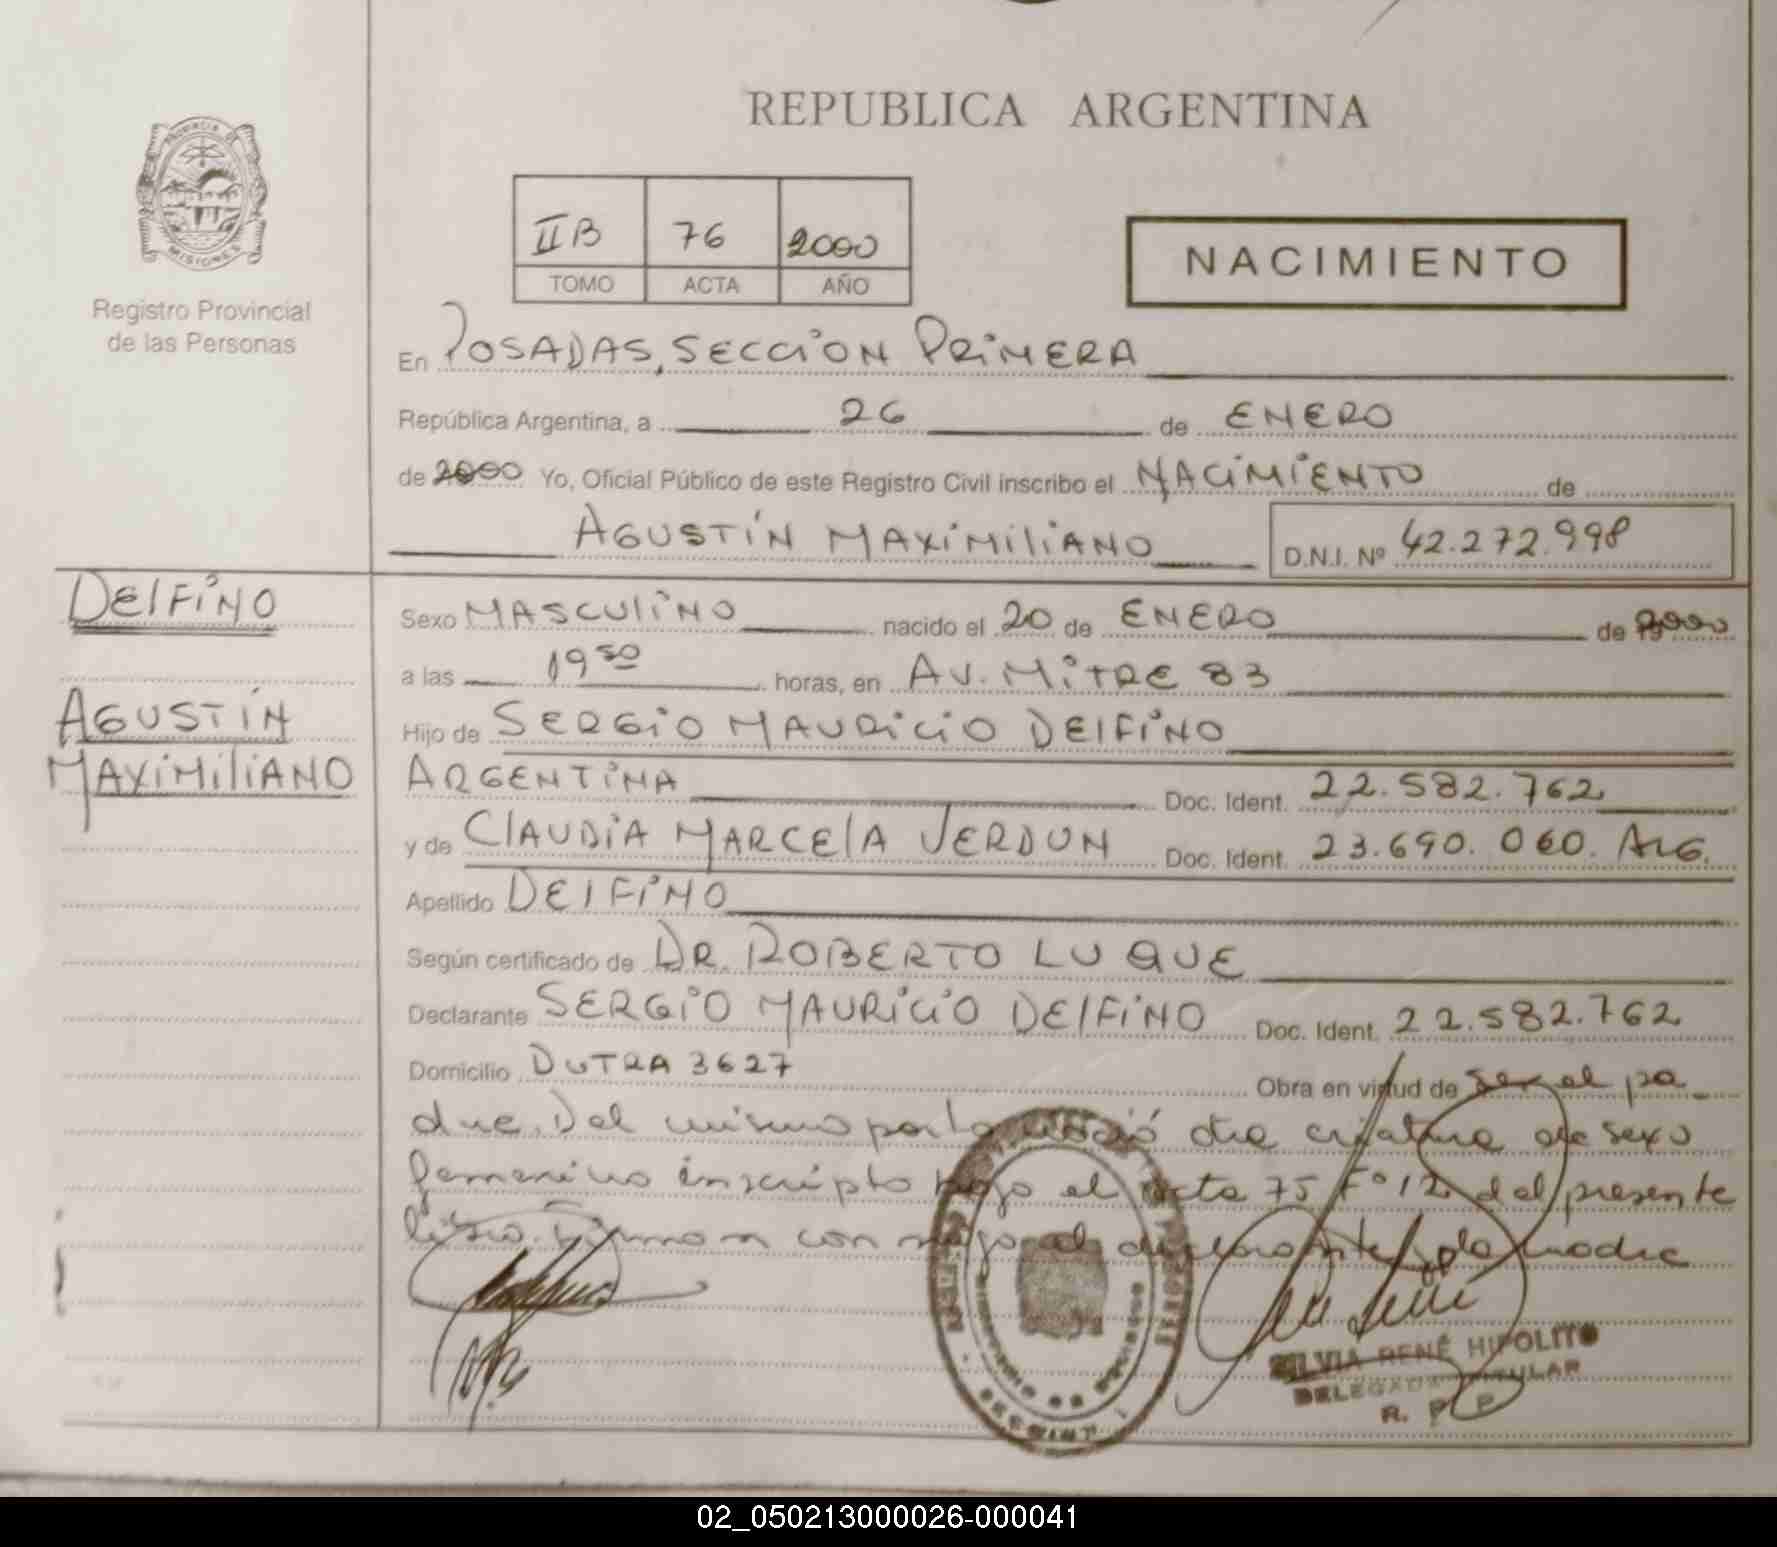 REPUBLICA ARGENTINA
PROVINCIA DE
MISIONES
Registro Provincial
de las Personas
II B 76 2000
TOMO ACTA AÑO
NACIMIENTO
En POSADAS, SECCION PRIMERA
República Argentina, a 26 de ENERO
de 2000 Yo, Oficial Público de este Registro Civil inscribo el NACIMIENTO de
AGUSTÍN MAXIMILIANO D.N.I. Nº 42.272.998
DELFINO
AGUSTÍN
MAXIMILIANO
Sexo MASCULINO nacido el 20 de ENERO de 2000
a las 19 50 horas, en AV. MITRE 83
Hijo de SERGIO MAURICIO DELFINO
ARGENTINA Doc. Ident. 22.582.762
y de CLAUDIA MARCELA VERDUN Doc. Ident. 23.690.060. ARG.
Apellido DELFINO
Según certificado de DR. ROBERTO LUQUE
Declarante SERGIO MAURICIO DELFINO Doc. Ident. 22.582.762
Domicilio DUTRA 3627 Obra en virtud de ser el pa
dre. Del mismo parto nació otra criatura de sexo
femenino inscripto bajo el acta 75 Fº 12 del presente
libro. Firman conmigo el declarante y la madre
SILVIA RENÉ HIPOLITO
DELEGADA TITULAR
R. P. P.
02_050213000026-000041